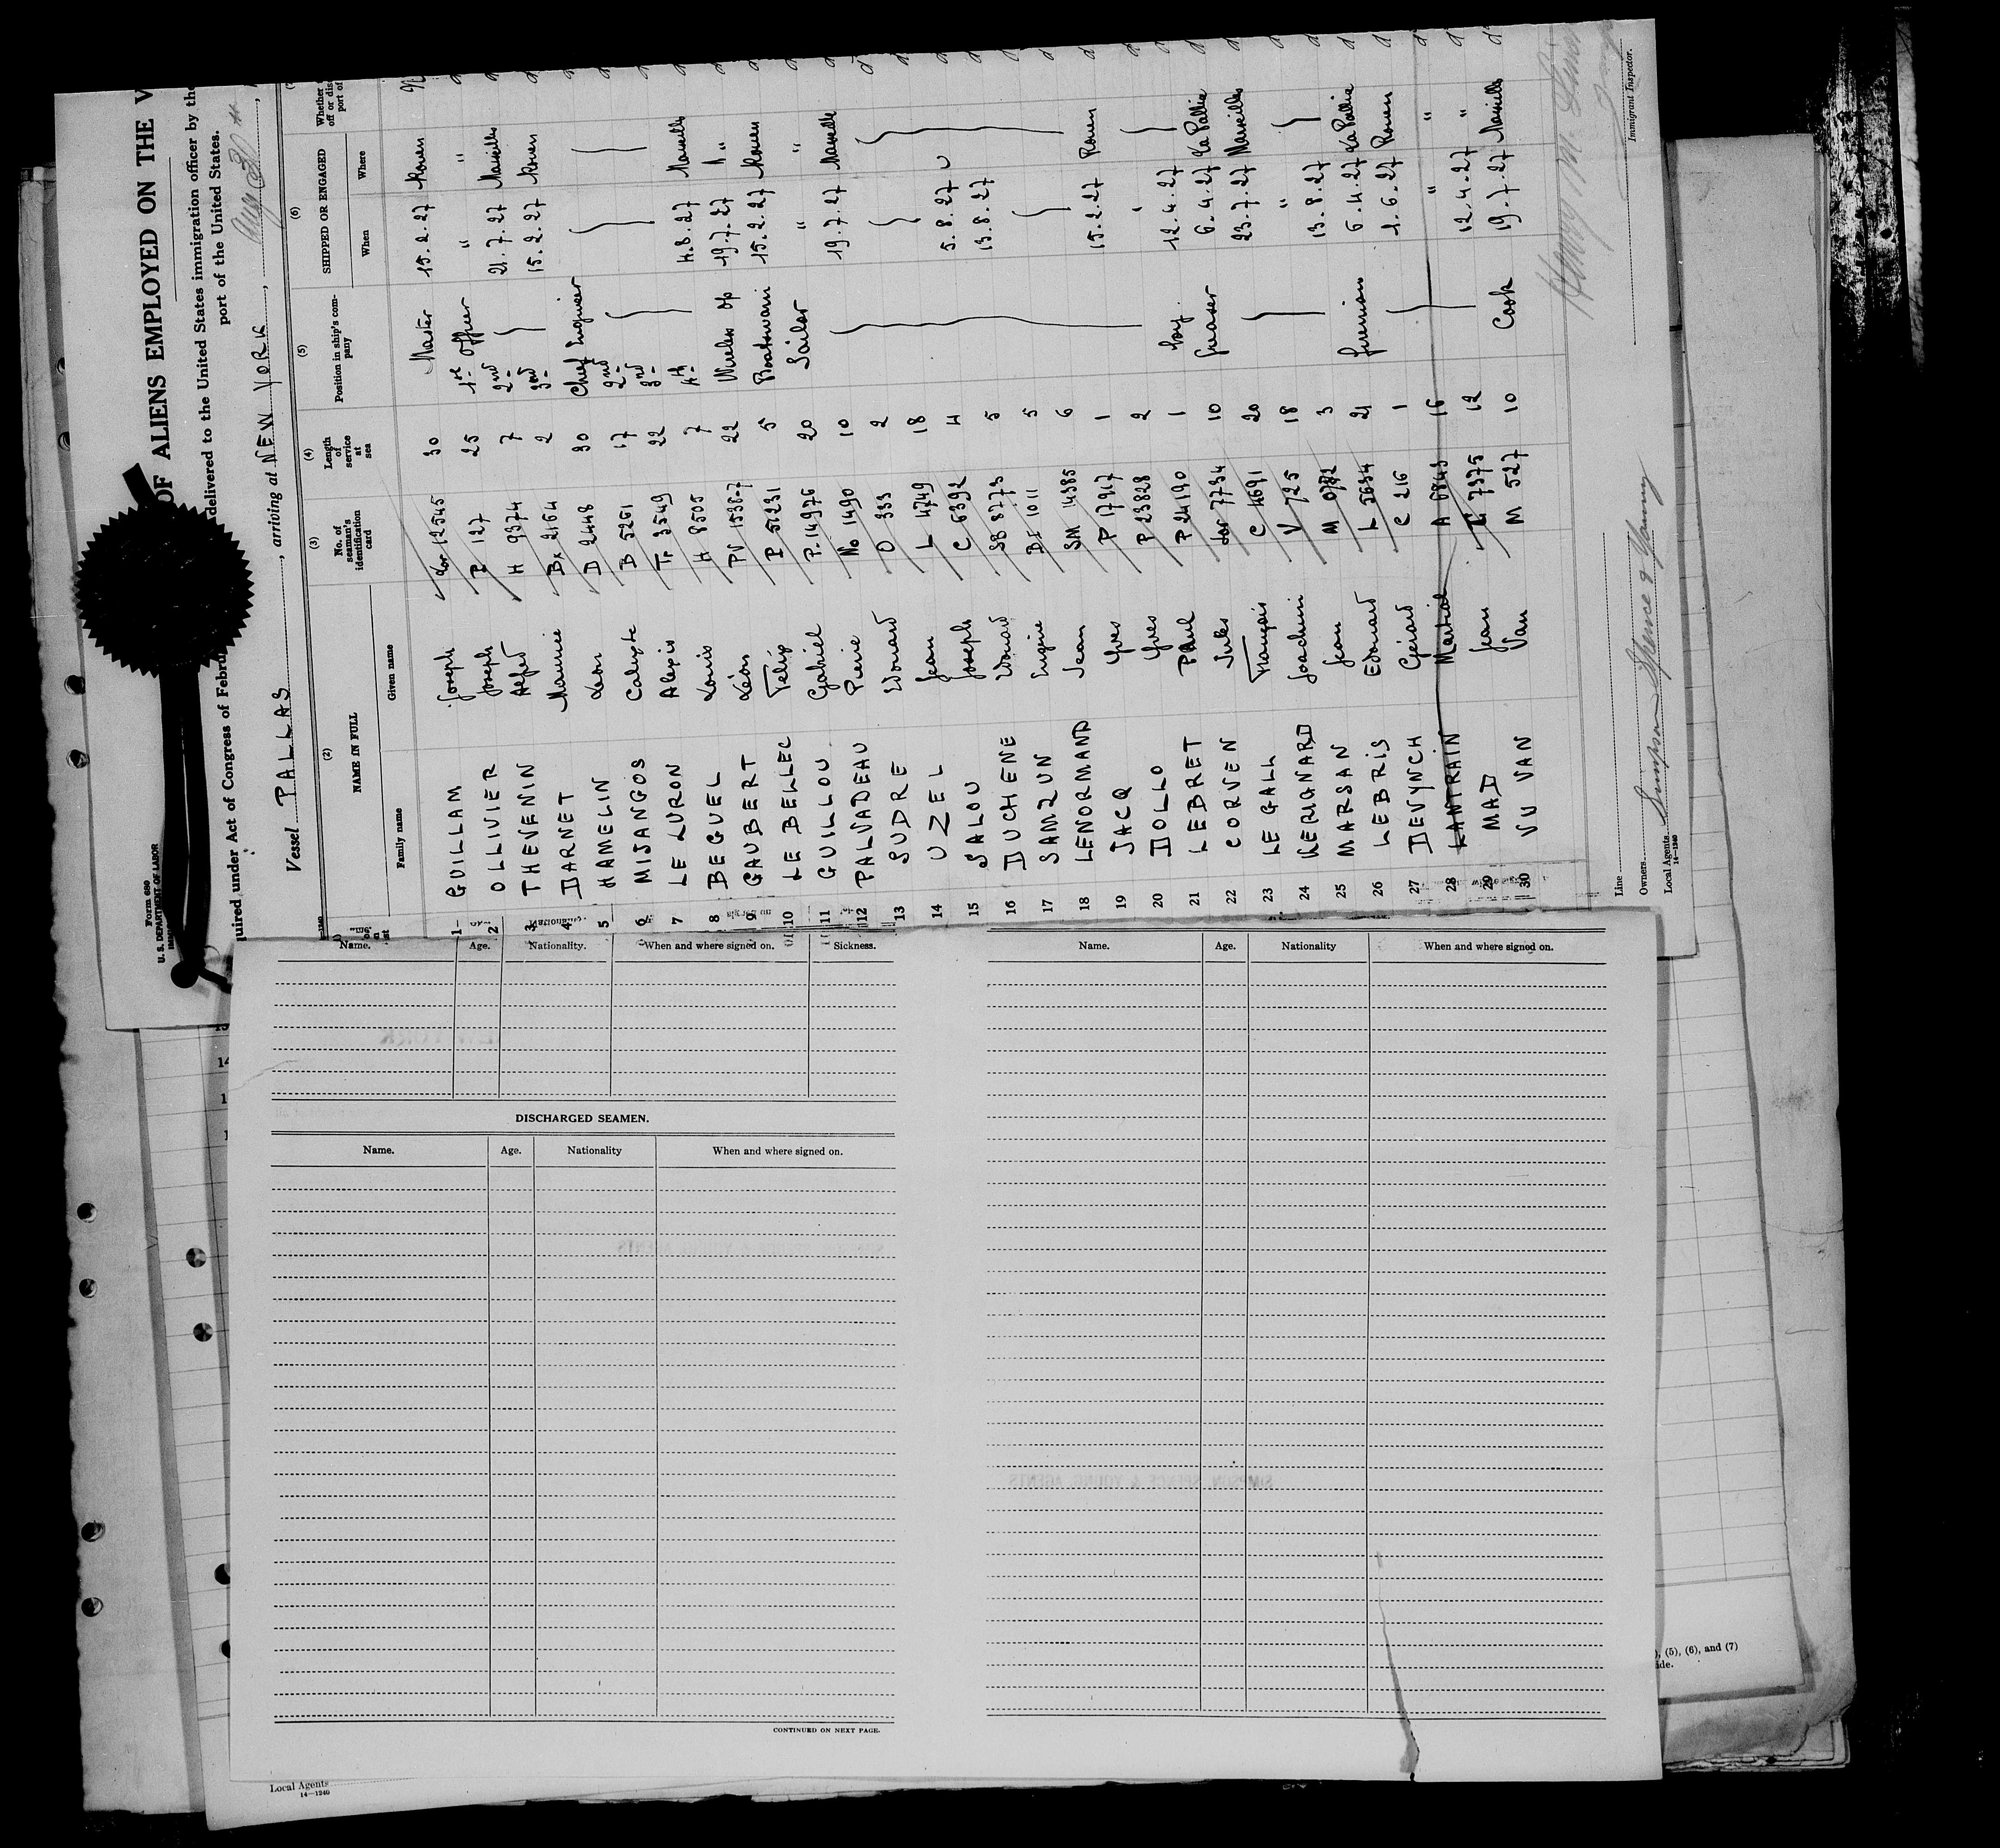 Form 680
U. S. DEPARTMENT OF LABOR
OF ALIENS EMPLOYED ON THE V
quired under Act of Congress of Febru
delivered to the United States immigration officer by the
port of the United States.
Vessel PALLAS, arriving at NEW YORK, Aug 30
(2) (3) (4) (5) (6)
NAME IN FULL No. of seaman's identification card Length of service at sea Position in ship's company SHIPPED OR ENGAGED Whether
Family name Given name When Where
1 GUILLAM Joseph 12545 30 Master 15.2.27 Rouen
2 OLLIVIER Joseph P 127 25 1st Officer " "
3 THEVENIN Alfred H 9374 7 2nd 21.7.27 Marseilles
4 DARNET Maurice Bx 2164 2 3rd 15.2.27 Rouen
5 HAMELIN Léon D 2448 30 Chief Engineer
6 MIJANGOS Calixte B 5261 17 2nd
7 LE LURON Alexis Tr 3549 22 3rd
8 BEGUEL Louis H 8505 7 4th 4.8.27 Marseilles
9 GAUBERT Léon PV 22 Wireless Op 19.7.27 "
10 LE BELLEC P 5 Boatswain 15.2.27 Rouen
11 GUILLOU Gabriel P. 14976 20 Sailor " "
12 PALVADEAU Pierre No 1490 10 19.7.27 Marseille
13 SUDRE Edouard O 333 2
14 UZEL Jean L 4749 18
15 SALOU Joseph C 6392 4 5.8.27
16 DUCHENE Edouard SB 8773 5 13.8.27
17 SAMZUN Eugène BI 1011 5
18 LENORMAND Jean SM 14385 6
19 JACQ Yves P 17917 1 15.2.27 Rouen
20 DOLLO Yves P 23828 2 "
21 LEBRET Paul P 24190 1 Boy 12.4.27
22 CORVEN Jules 7734 10 Greaser 6.4.27 La Pallice
23 LE GALL François C 4691 20 23.7.27 Marseilles
24 KERIGNARD Joachim V 725 18 "
25 MARSAN Jean M 3 13.8.27
26 LEBRIS Edouard L 5634 21 Fireman 6.4.27 La Pallice
27 DEVYNCH Gérard C 216 1 1.6.27 Rouen
28 LANTRAIN Martial A 6843 16 " "
29 MAD Jean 7375 12 12.4.27 "
30 VU VAN Van M 527 10 Cook 19.7.27 Marseille
Line
Owners
Local Agents Simpson Spence & Young
14—1240
Immigrant Inspector.
Name. Age. Nationality. When and where signed on. Sickness.
DISCHARGED SEAMEN.
Name. Age. Nationality When and where signed on.
CONTINUED ON NEXT PAGE.
Name. Age. Nationality When and where signed on.
SIMPSON, SPENCE & YOUNG, AGENTS
SIMPSON, SPENCE & YOUNG, AGENTS
), (5), (6), and (7)
ide.
Local Agents
14—1240